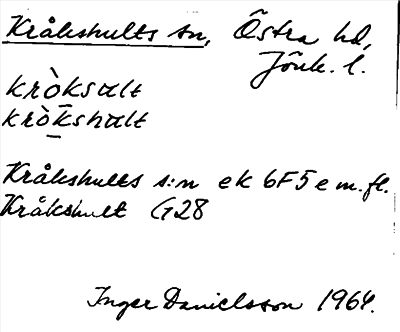 Kråkshults sn, Östra hd,
Jönk. l.
kròksalt
kròkshalt
Kråkshults s:n ek 6F5e m.fl.
Kråkshult G28
Inger Danielsson 1964.